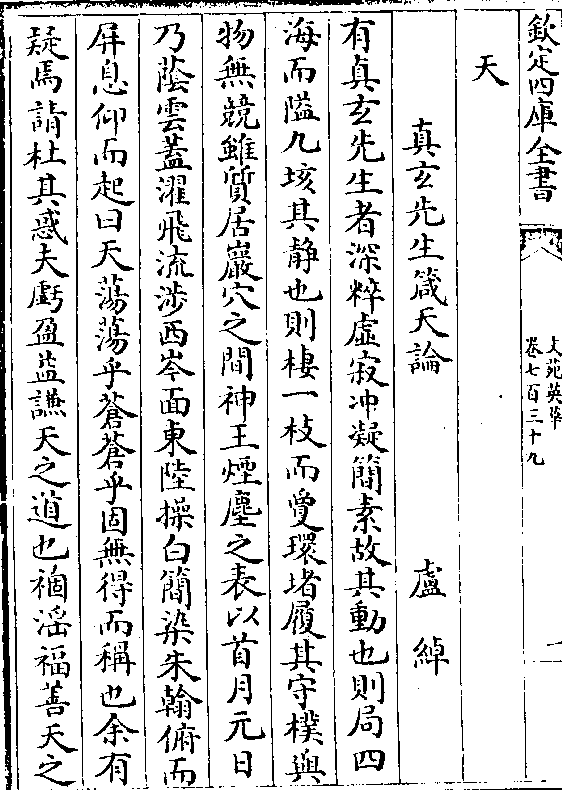 欽定四庫全書
文苑英華
卷七百三十九
一
天
真玄先生箴天論
盧綽
有真玄先生者深粹虛寂冲凝簡素故其動也則局四
海而隘九垓其静也則棲一枝而㝹環堵履其守樸與
物無競雖質居巖穴之間神王煙塵之表以首月元日
乃蔭雲蓋濯飛流涉西岑面東陸操白簡染朱翰俯而
屏息仰而起曰天蕩蕩乎蒼蒼乎固無得而稱也余有
疑焉請杜其惑夫虧盈益謙天之道也禍淫福善天之